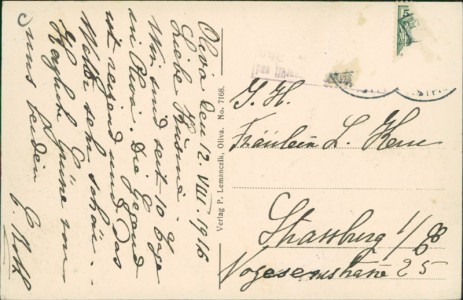 Oliva den 12. VIII 1916
Liebe
Wir sind seit 10 Tage
in Oliva. Die Gegend
ist reizend und das
Wetter sehr schön.
Herzliche Grüße von
uns beiden
Verlag P. Lemanczik, Oliva. No. 7168.
5
Fräulein L.
Strassburg i/
Vogesenstraße 25